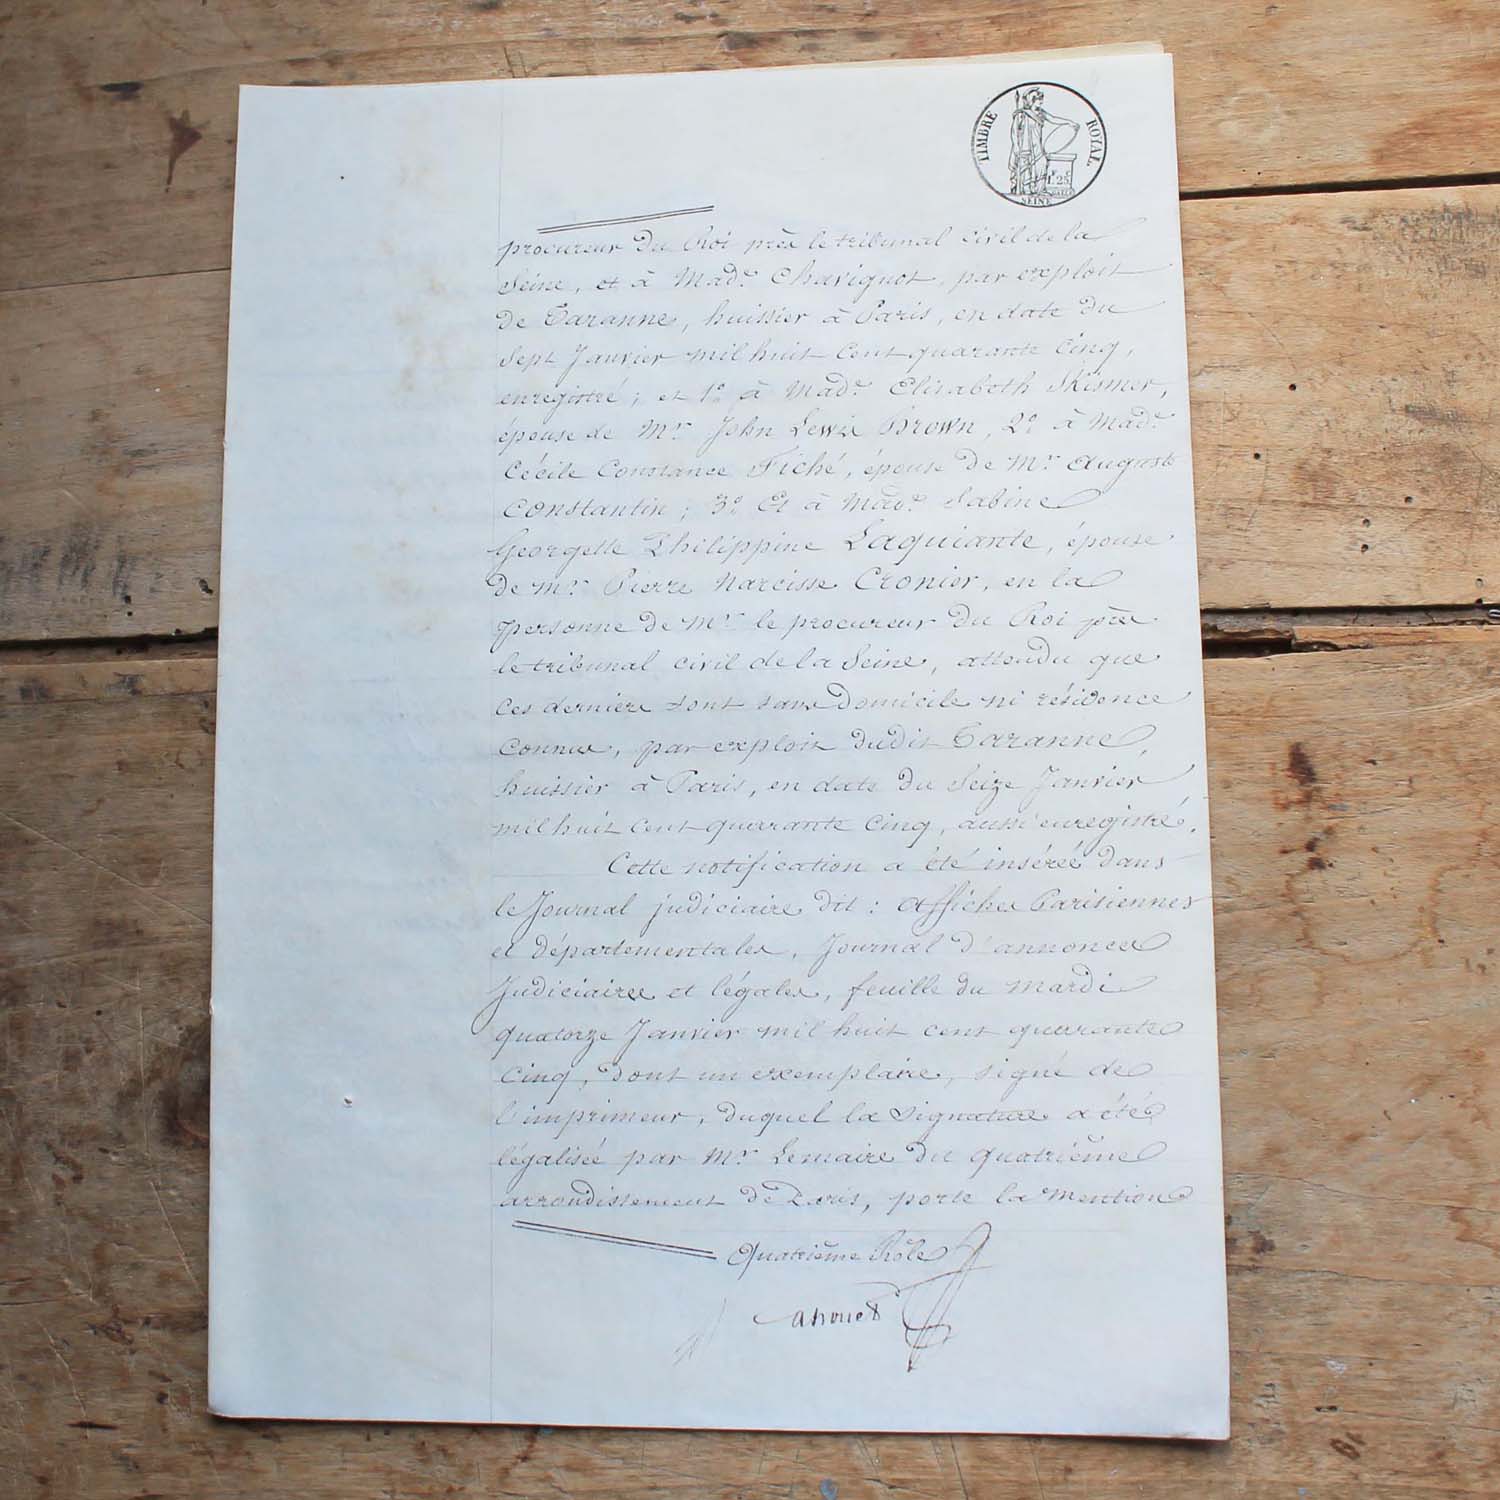 TIMBRE ROYAL
1.25
SEINE
procureur du Roi près le tribunal civil de la
Seine, et à Made. Chavignot, par exploit
de Taranne, huissier à Paris, en date du
Sept Janvier mil huit cent quarante cinq,
enregistré; et 1º. à Made. Elisabeth Skismer,
épouse de Mr. John Lewis Brown, 2º. à Made.
Cécile Constance Fiché, épouse de Mr. Auguste
Constantin; 3º. Et à Made. Sabine
Georgette Philippine Laquiante, épouse
de Mr. Pierre Narcisse Cronier, en la
personne de Mr. le procureur du Roi près
le tribunal civil de la Seine, attendu que
ces derniers sont sans Domicile ni résidence
connus, par exploit dudit Taranne,
huissier à Paris, en date du Seize Janvier
mil huit cent quarante cinq, aussi enregistré.
Cette notification a été insérée dans
le Journal judiciaire dit: affiches Parisiennes
et départementales, Journal d'annonces
Judiciaires et légales, feuille du Mardi
quatorze Janvier mil huit cent quarante
cinq, dont un exemplaire, signé de
l'imprimeur, duquel la signature a été
légalisée par Mr. Lemaire du quatrième
arrondissement de Paris, porte la mention
Quatrième Rôle